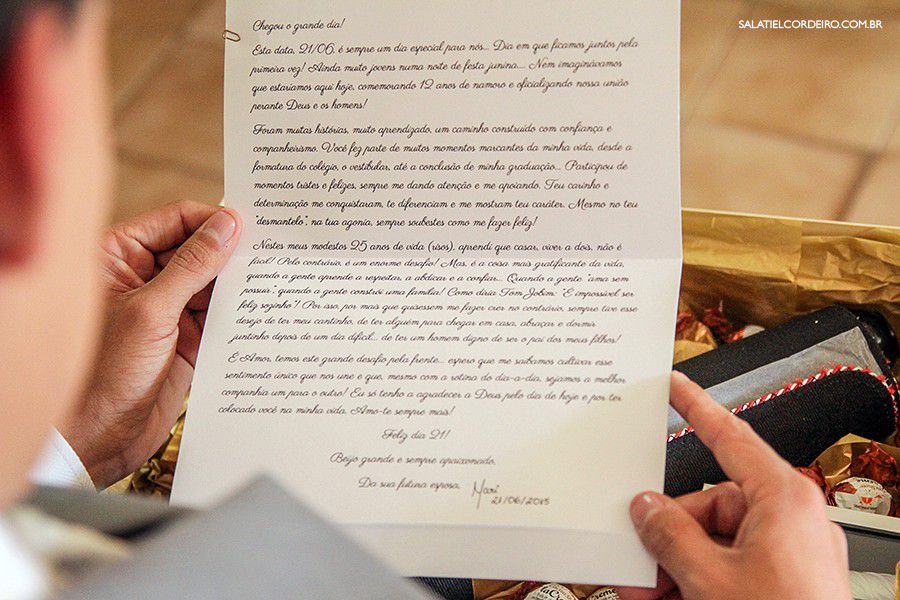 SALATIELCORDEIRO.COM.BR
Chegou o grande dia!
Esta data, 21/06, é sempre um dia especial para nós... Dia em que ficamos juntos pela
primeira vez! Ainda muito jovens numa noite de festa junina.... Nem imaginávamos
que estaríamos aqui hoje, comemorando 12 anos de namoro e oficializando nossa união
perante Deus e os homens!
Foram muitas histórias, muito aprendizado, um caminho construído com confiança e
companheirismo. Você fez parte de muitos momentos marcantes da minha vida, desde a
formatura do colégio, o vestibular, até a conclusão de minha graduação... Participou de
momentos tristes e felizes, sempre me dando atenção e me apoiando. Teu carinho e
determinação me conquistaram, te diferenciam e me mostram teu caráter. Mesmo no teu
"desmantelo", na tua agonia, sempre soubestes como me fazer feliz!
Nestes meus modestos 25 anos de vida (risos), aprendi que casar, viver a dois, não é
fácil! Pelo contrário, é um enorme desafio! Mas, é a coisa mais gratificante da vida,
quando a gente aprende a respeitar, a abdicar e a confiar... Quando a gente "ama sem
possuir", quando a gente constrói uma família! Como diria Tom Jobim: "É impossível ser
feliz sozinho"! Por isso, por mais que quisessem me fazer crer no contrário, sempre tive esse
desejo de ter meu cantinho, de ter alguém para chegar em casa, abraçar e dormir
juntinho depois de um dia difícil... de ter um homem digno de ser o pai dos meus filhos!
É Amor, temos este grande desafio pela frente... espero que nós saibamos cultivar esse
sentimento único que nos une e que, mesmo com a rotina do dia-a-dia, sejamos a melhor
companhia um para o outro! Eu só tenho a agradecer a Deus pelo dia de hoje e por ter
colocado você na minha vida. Amo-te sempre mais!
Feliz dia 21!
Beijo grande e sempre apaixonado,
Da sua futura esposa, Mari
21/06/2015